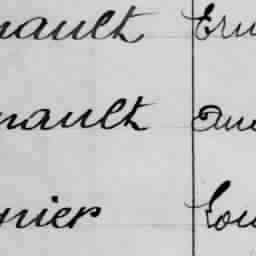 nault Ern
nault Aug
nier Lou